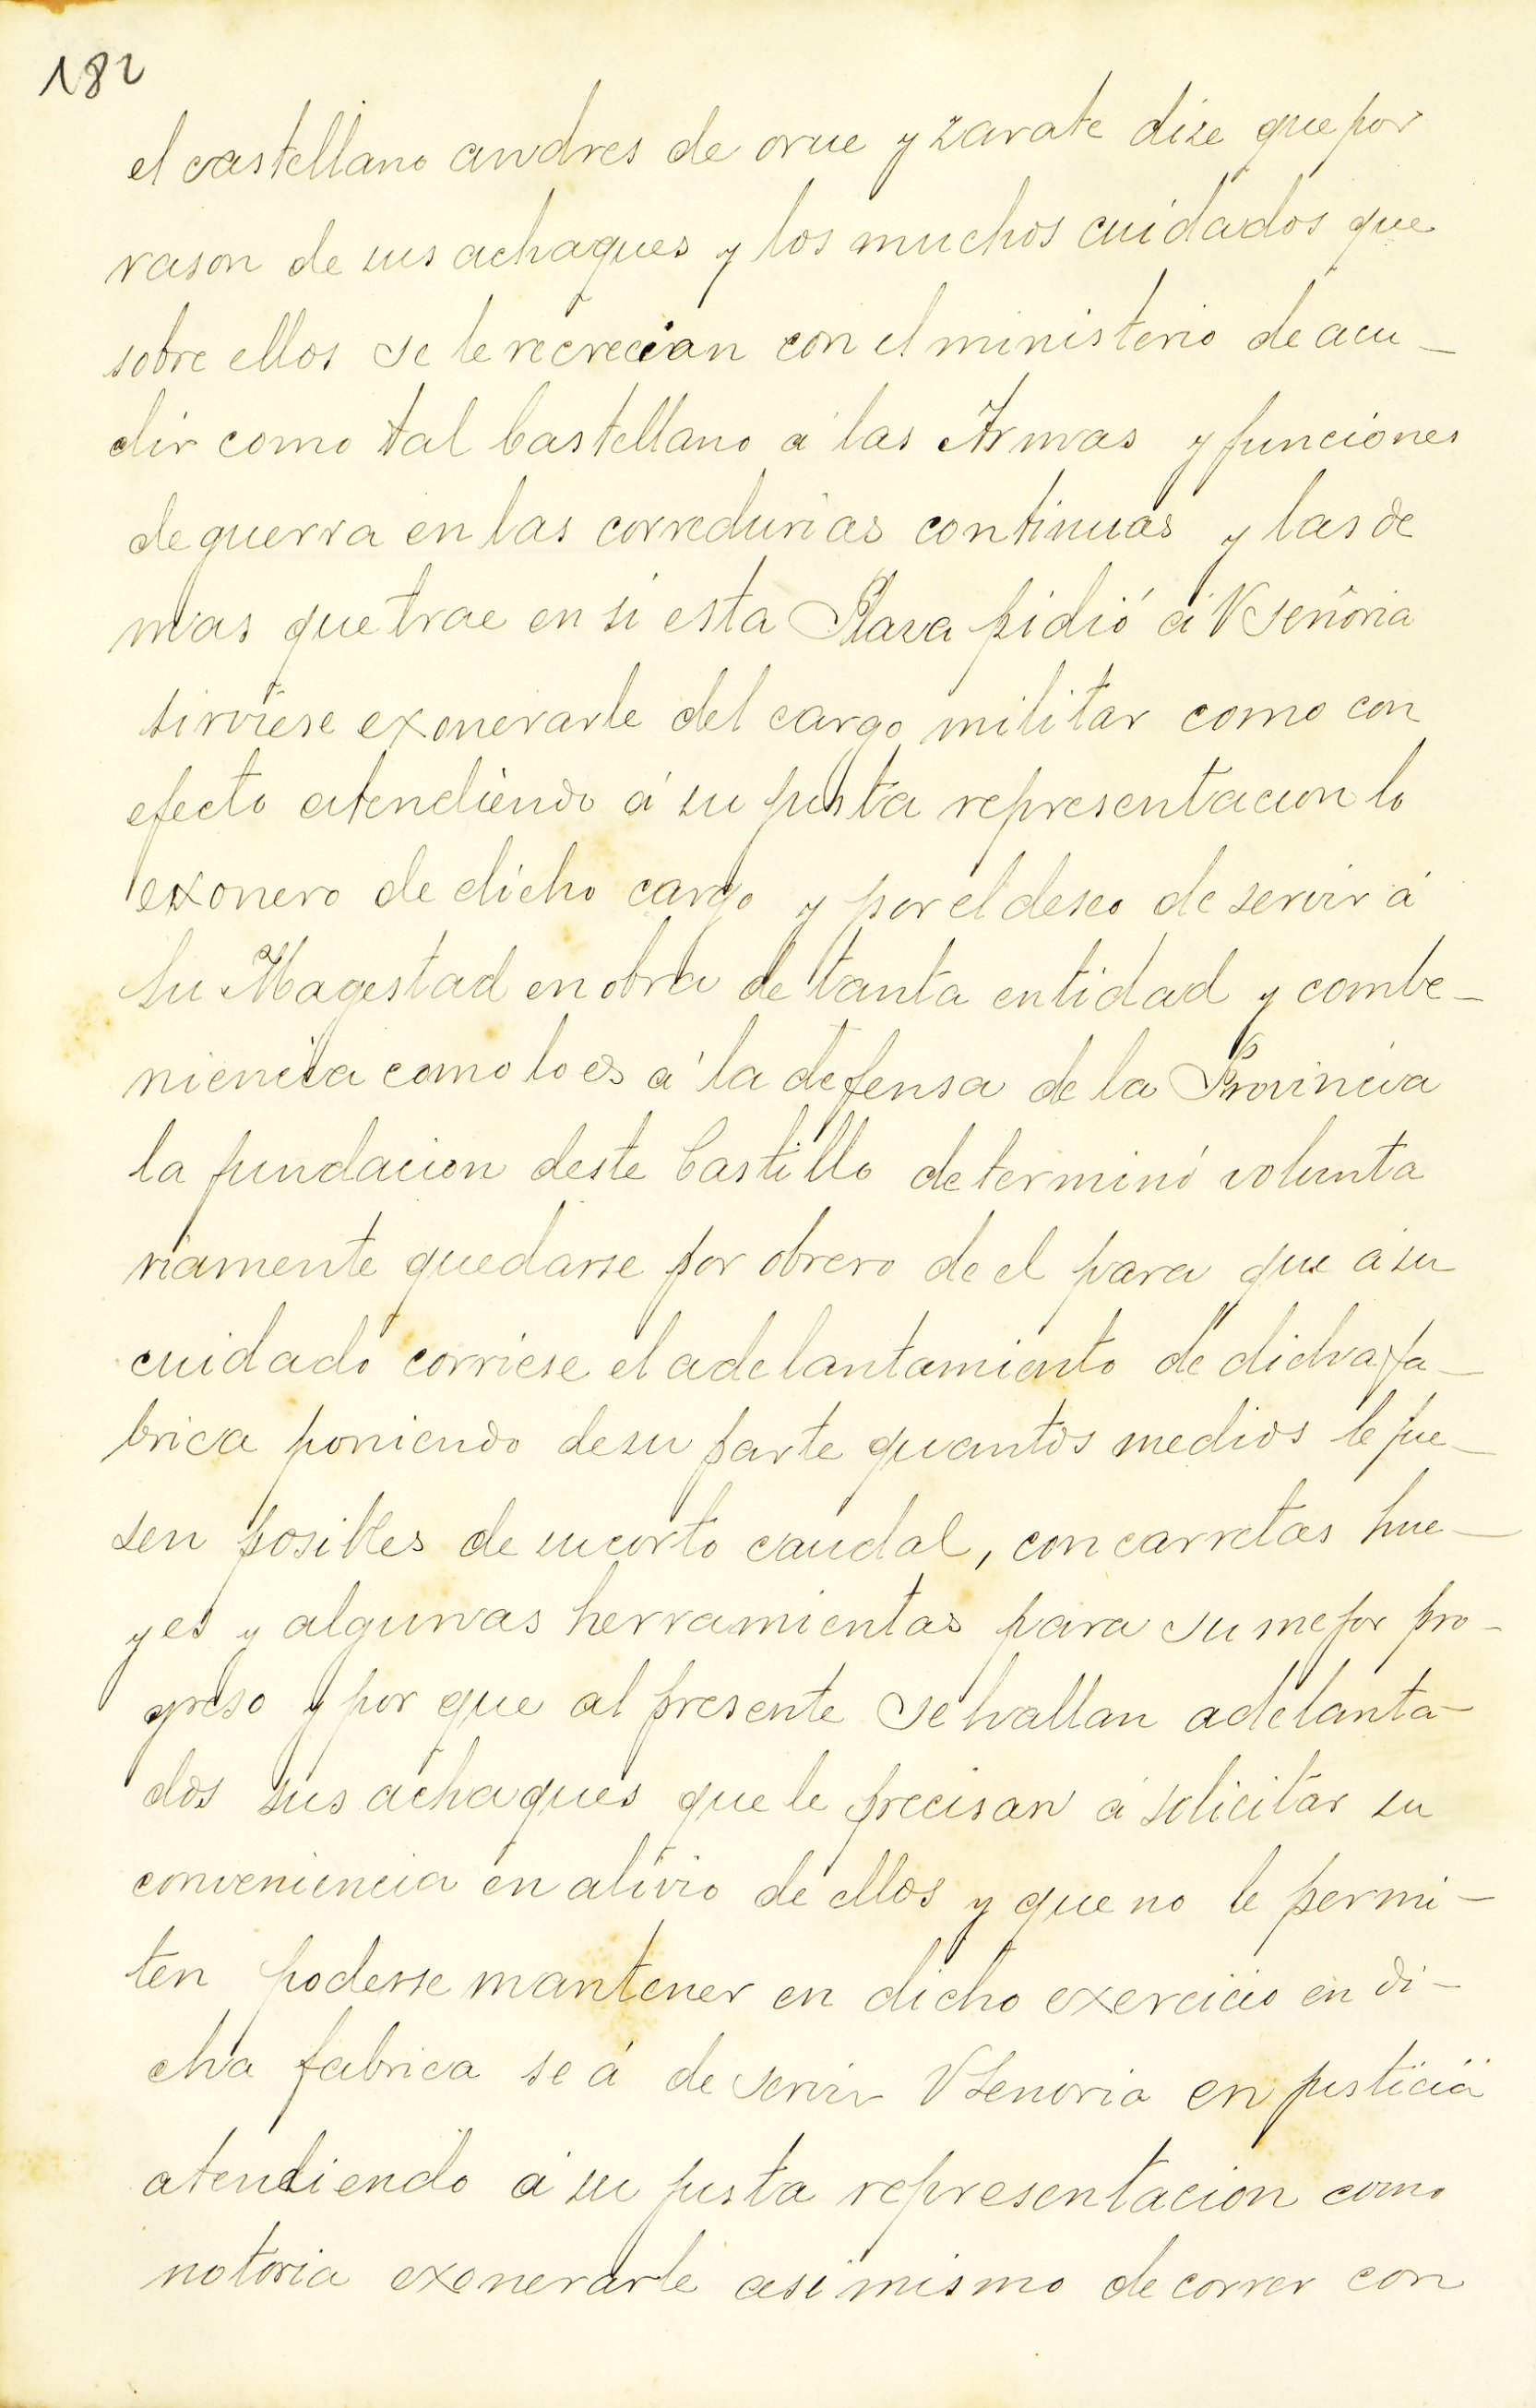 182
el castellano andres de orue y zarate dize que por
rason de sus achaques y los muchos cuidados que
sobre ellos se le recrecian con el ministerio de acu-
dir como tal Castellano á las Armas y funciones
de guerra en las corredurias continuas y las de
mas que trae en si esta Plaza pidió á V Señoria
sirviese exonerarle del cargo militar como con
efecto atendiendo á su justa representacion lo
exonero de dicho cargo y por el deseo de servir á
Su Magestad en obra de tanta entidad y combe-
niencia como lo es á la defensa de la Provincia
la fundacion deste Castillo determinó volunta
riamente quedarse por obrero de el para que á su
cuidado corriese el adelantamiento de dicha fa-
brica poniendo de su parte quantos medios le fue-
sen posibles de su corto caudal, con carretas hue-
yes y algunas herramientas para su mejor pro-
greso y por que al presente se hallan adelanta-
dos sus achaques que le precisan á solicitar su
conveniencia en alivio de ellos y que no le permi-
ten poderse mantener en dicho exercicio en di-
cha fabrica se á de servir V Senoria en justicia
atendiendo á su justa representacion como
notoria exonerarle asi mismo de correr con